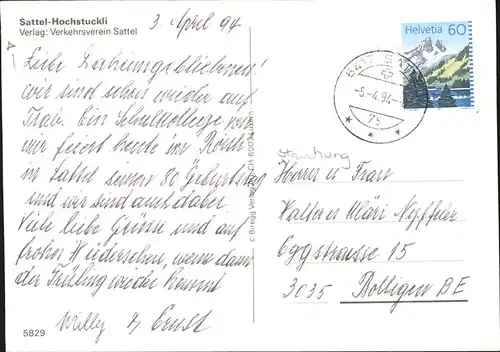 Sattel-Hochstuckli
Verlag: Verkehrsverein Sattel
3. April 94
Liebe Daheimgebliebenen!
wir sind schon wieder auf
Trab. Ein Schulkollege von
mir feiert heute im Rössli
in Sattel seinen 80. Geburtstag
und wir sind auch dabei
Viele liebe Grüsse und auf
frohes Wiedersehen, wenn dann
der Frühling wieder kommt
Willy & Ernst
5829
© Biregg Verlag CH 6003 Luzern
Helvetia 60
6417 SATTEL
-5-4.94-
Herrn u Frau
Walter u Klari Nyffeler
Eggstrasse 15
3035 Bolligen BE